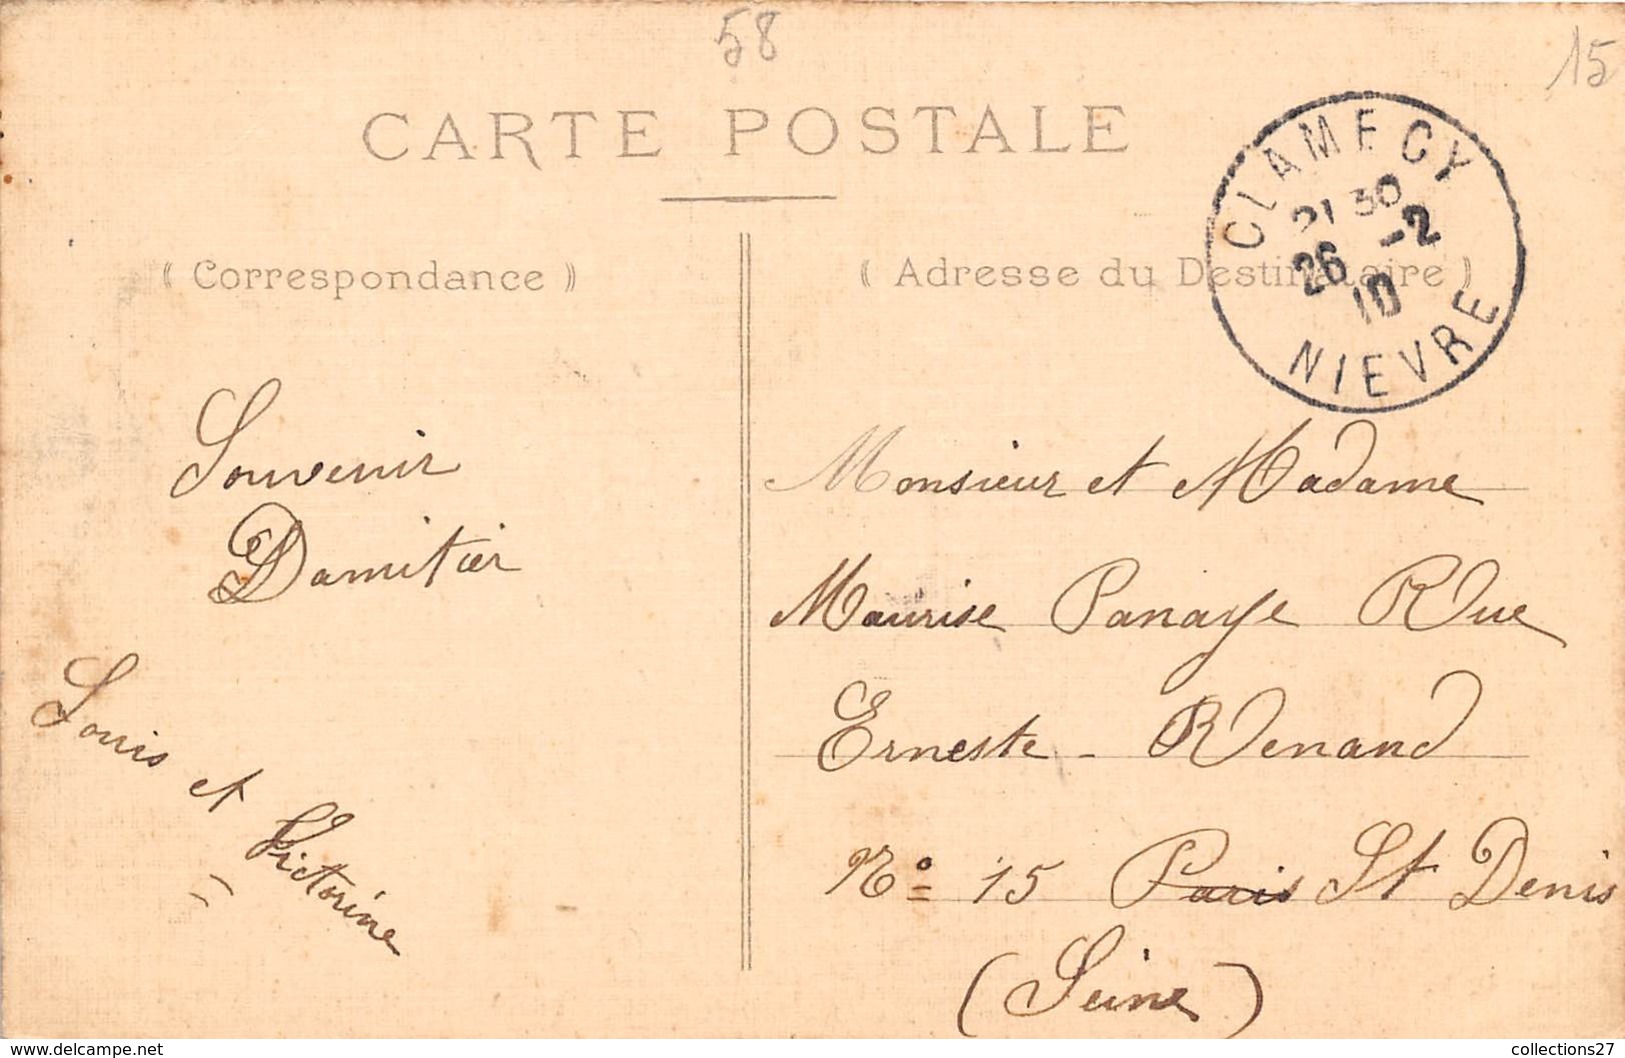 58
15
CARTE POSTALE
CLAMECY
21 30
26 -2
10
NIEVRE
( Correspondance )
( Adresse du Destinataire )
Souvenir
Damitier
Louis et Victorine
Monsieur et Madame
Maurise Panaye Rue
Erneste - Renand
No 15 Paris St Denis
(Seine)
www.delcampe.net
collections27